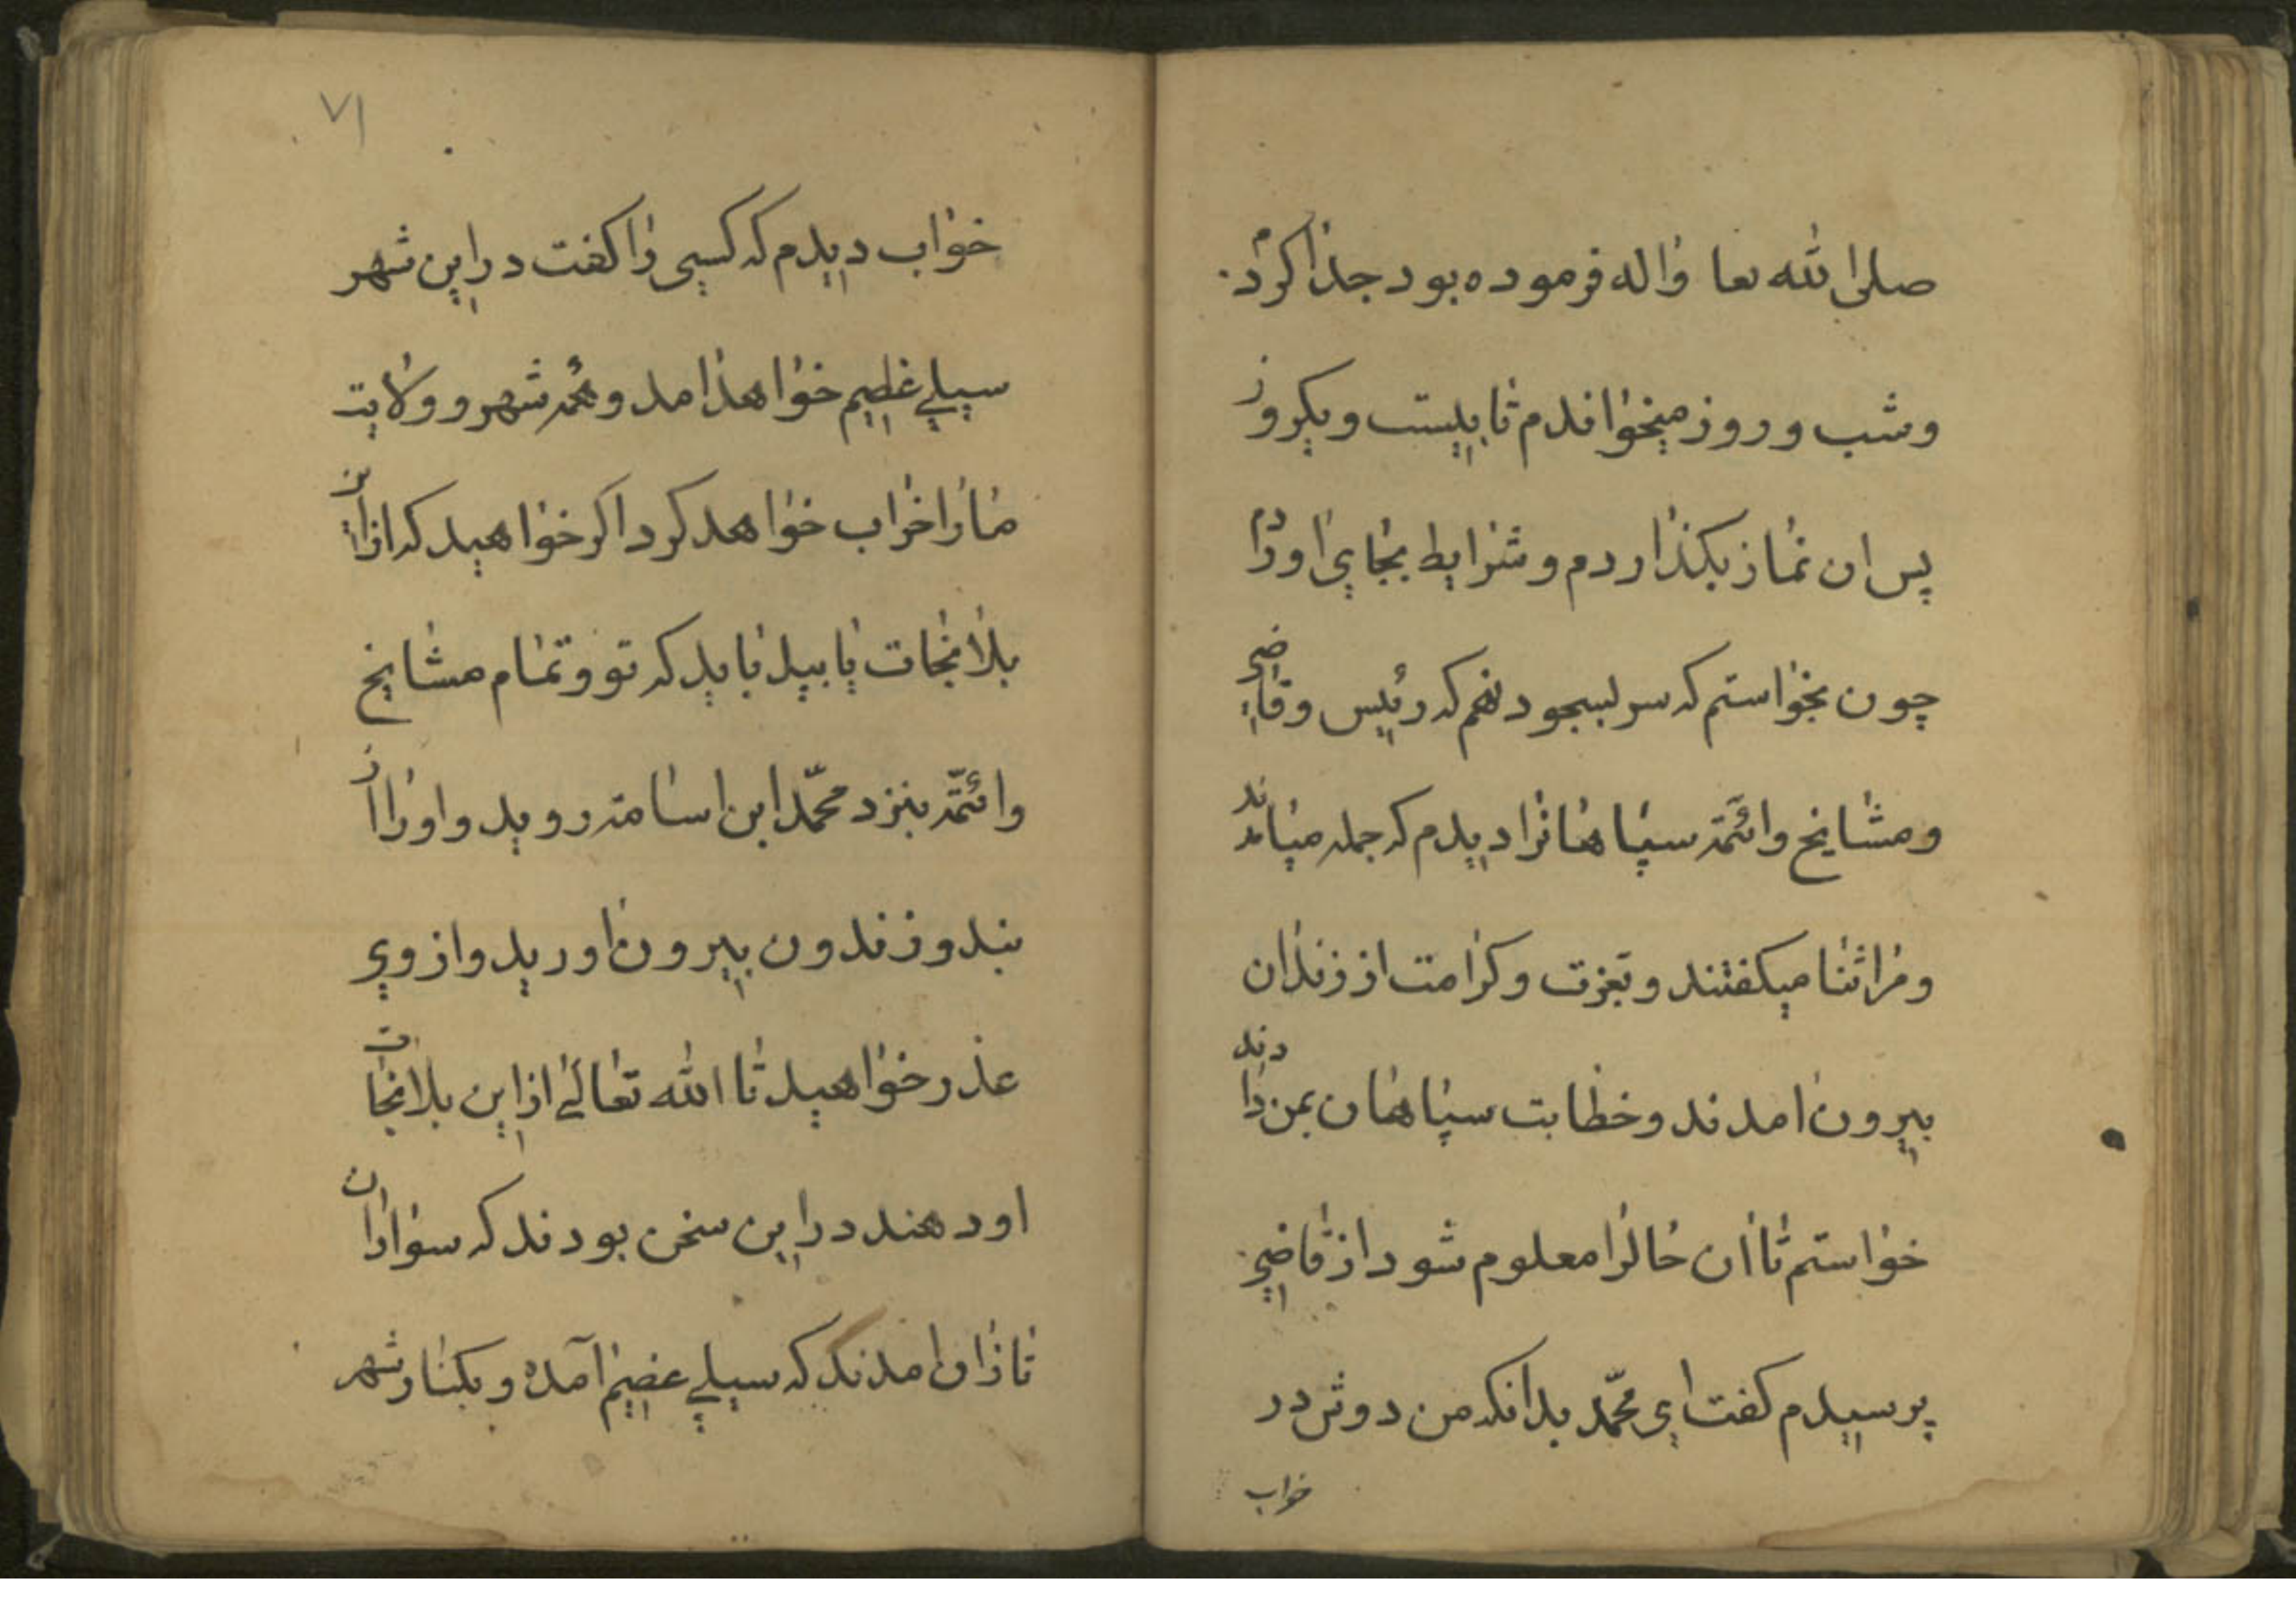 صلی الله تعا واله فرموده بود جدا کردم
وشب و روز میخواندم تا بیست و یکروز
پس ان نماز بکذاردم و شرایط بجای اوردم
چون بخواستم که سر بسجود نهم که رئیس وقاضی
ومشایخ وائمّه سپاهانرا دیدم که جمله میاندند
ومرا ثنا میکفتند و بعزت و کرامت از زندان
بیرون امدند و خطابت سپاهان بمن دادند
خواستم تا ان حالرا معلوم شود از قاضی
پرسیدم کفت ای محمّد بدانکه من دوش در
خواب
۷۱
خواب دیدم که کسی را کفت در این شهر
سیلی عظیم خواهد امد و همه شهر و ولایت
مارا خراب خواهد کرد اکر خواهید که از این
بلا نجات یابید باید که تو و تمام مشایخ
وائمّه بنزد محمّد ابن اسامه روید واورا از
بند و زندون بیرون اورید واز وی
عذر خواهید تا الله تعالی از این بلا نجات
او دهند در این سخن بودند که سواران
تازان امدند که سیلی عضیم آمده و بکنار شهر